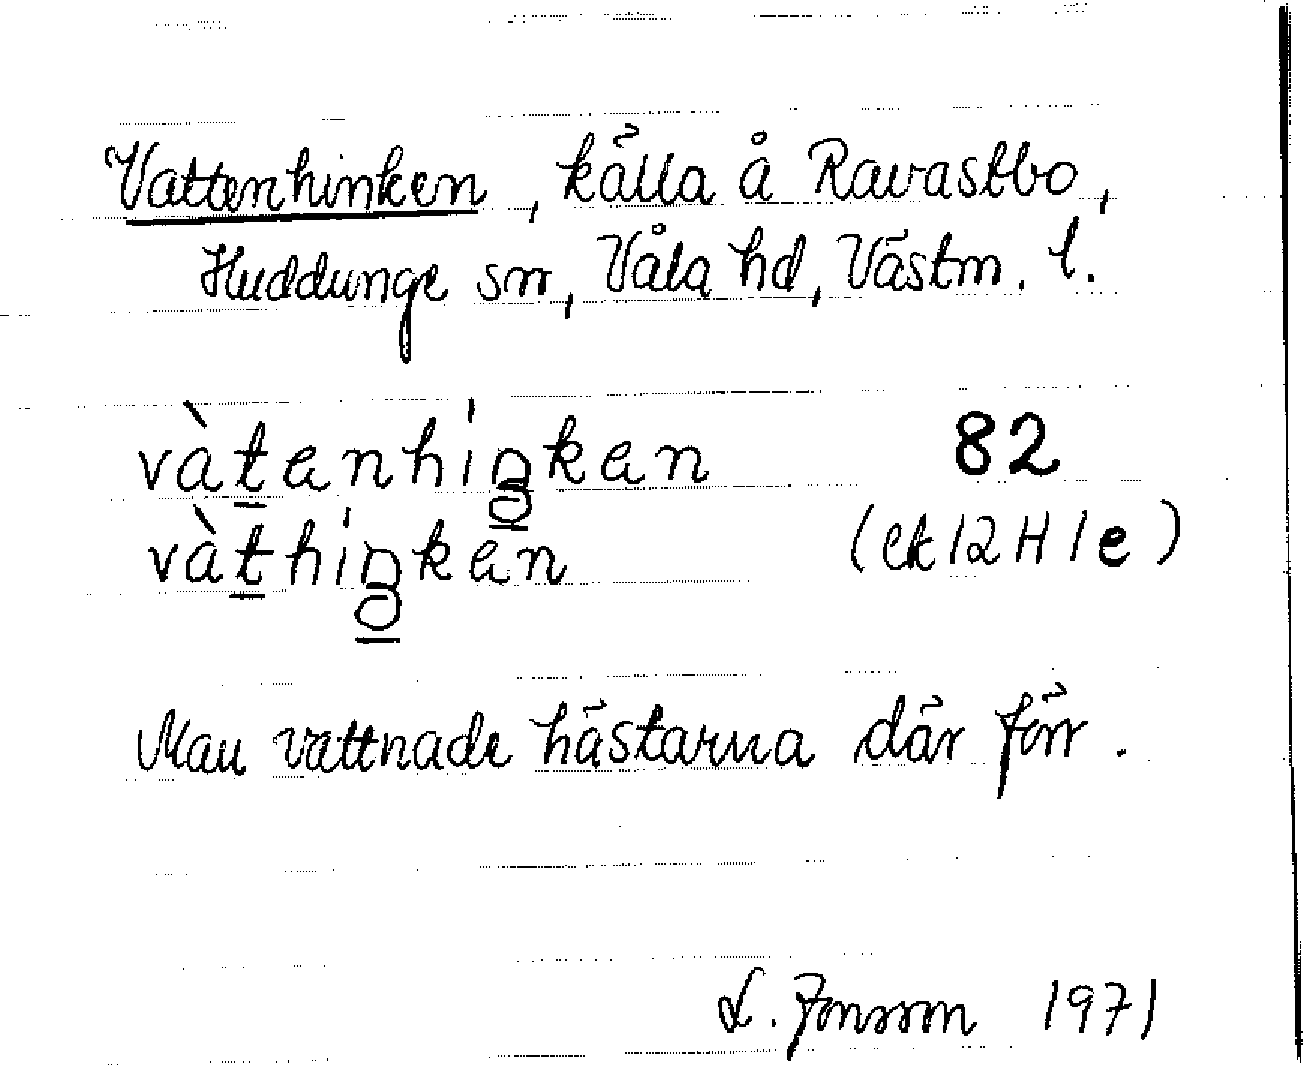 Vattenhinken, källa å Ravastbo,
Huddunge sn, Våla hd, Västm. l.
vàtenhiŋken 82
vàthiŋken (ek 12 H 1 e)
Man vattnade hästarna där förr.
L. Jonsson 1971